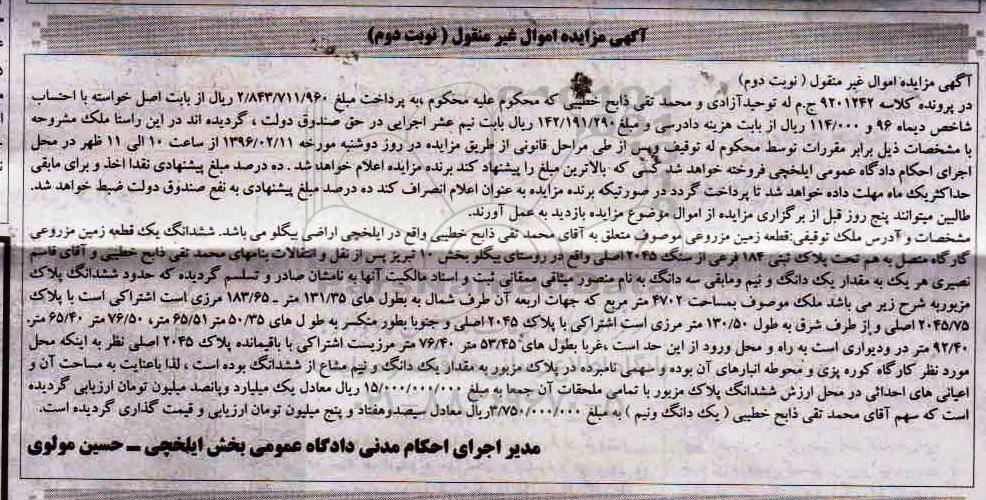 آگهی مزایده اموال غیر منقول ( نوبت دوم)
آگهی مزایده اموال غیر منقول ( نوبت دوم)
در پرونده کلاسه ۹۲۰۱۲۴۲ ج.م له توحیدآزادی و محمد تقی ذابح خطیبی که محکوم علیه محکوم ،به پرداخت مبلغ ۲/۸۴۳/۷۱۱/۹۶۰ ریال از بابت اصل خواسته با احتساب
شاخص دیماه ۹۶ و ۱۱۴/۰۰۰ ریال از بابت هزینه دادرسی و مبلغ ۱۴۲/۱۹۱/۲۹۰ ریال بابت نیم عشر اجرایی در حق صندوق دولت ، گردیده اند در این راستا ملک مشروحه
با مشخصات ذیل برابر مقررات توسط محکوم له توقیف وپس از طی مراحل قانونی از طریق مزایده در روز دوشنبه مورخه ۱۳۹۶/۰۲/۱۱ از ساعت ۱۰ الی ۱۱ ظهر در محل
اجرای احکام دادگاه عمومی ایلخچی فروخته خواهد شد کسی که بالاترین مبلغ را پیشنهاد کند برنده مزایده اعلام خواهد شد . ده درصد مبلغ پیشنهادی نقدا اخذ و برای مابقی
حداکثریک ماه مهلت داده خواهد شد تا پرداخت گردد در صورتیکه برنده مزایده به عنوان اعلام انصراف کند ده درصد مبلغ پیشنهادی به نفع صندوق دولت ضبط خواهد شد.
طالبین میتوانند پنج روز قبل از برگزاری مزایده از اموال موضوع مزایده بازدید به عمل آورند.
مشخصات و آدرس ملک توقیفی:قطعه زمین مزروعی موصوف متعلق به آقای محمد تقی ذابح خطیبی واقع در ایلخچی اراضی بیگلو می باشد. ششدانگ یک قطعه زمین مزروعی
گارگاه متصل به هم تحت پلاک ثبتی ۱۸۴ فرعی از سنگ ۲۰۴۵ اصلی واقع در روستای بیگلو بخش ۱۰ تبریز پس از نقل و انتقالات بنامهای محمد تقی ذابح خطیبی و آقای قاسم
نصیری هر یک به مقدار یک دانگ و نیم ومابقی سه دانگ به نام منصور میثاقی ممقانی ثبت و اسناد مالکیت آنها به نامشان صادر و تسلسم گردیده که حدود ششدانگ پلاک
مزبوربه شرح زیر می باشد ملک موصوف بمساحت ۴۷۰۲ متر مربع که جهات اربعه آن طرف شمال به بطول های ۱۳۱/۳۵ متر ـ ۱۸۳/۶۵ مرزی است اشتراکی است با پلاک
۲۰۴۵/۷۵ اصلی و از طرف شرق به طول ۱۳۰/۵۰ متر مرزی است اشتراکی با پلاک ۲۰۴۵ اصلی و جنوبا بطور منکسر به طو ل های ۵۰/۳۵ متر ۶۵/۵۱ متر، ۷۶/۵۰ متر ۶۵/۴۰ متر.
۹۲/۴۰ متر در ودیواری است به راه و محل ورود از این حد است ،غربا بطول های ۵۳/۴۵ متر ۷۶/۴۰ متر مرزیست اشتراکی با باقیمانده پلاک ۲۰۴۵ اصلی نظر به اینکه محل
مورد نظر کارگاه کوره پزی و محوطه انبارهای آن بوده و سهمی نامبرده در پلاک مزبور به مقدار یک دانگ و نیم مشاع از ششدانگ بوده است ، لذا باعنایت به مساحت آن و
اعیانی های احداثی در محل ارزش ششدانگ پلاک مزبور با تمامی ملحقات آن جمعا به مبلغ ۱۵/۰۰۰/۰۰۰/۰۰۰ ریال معادل یک میلیارد وپانصد میلیون تومان ارزیابی گردیده
است که سهم آقای محمد تقی ذابح خطیبی ( یک دانگ ونیم ) به مبلغ ۳/۷۵۰/۰۰۰/۰۰۰ریال معادل سیصدوهفتاد و پنج میلیون تومان ارزیابی و قیمت گذاری گردیده است.
مدیر اجرای احکام مدنی دادگاه عمومی بخش ایلخچی ــ حسین مولوی